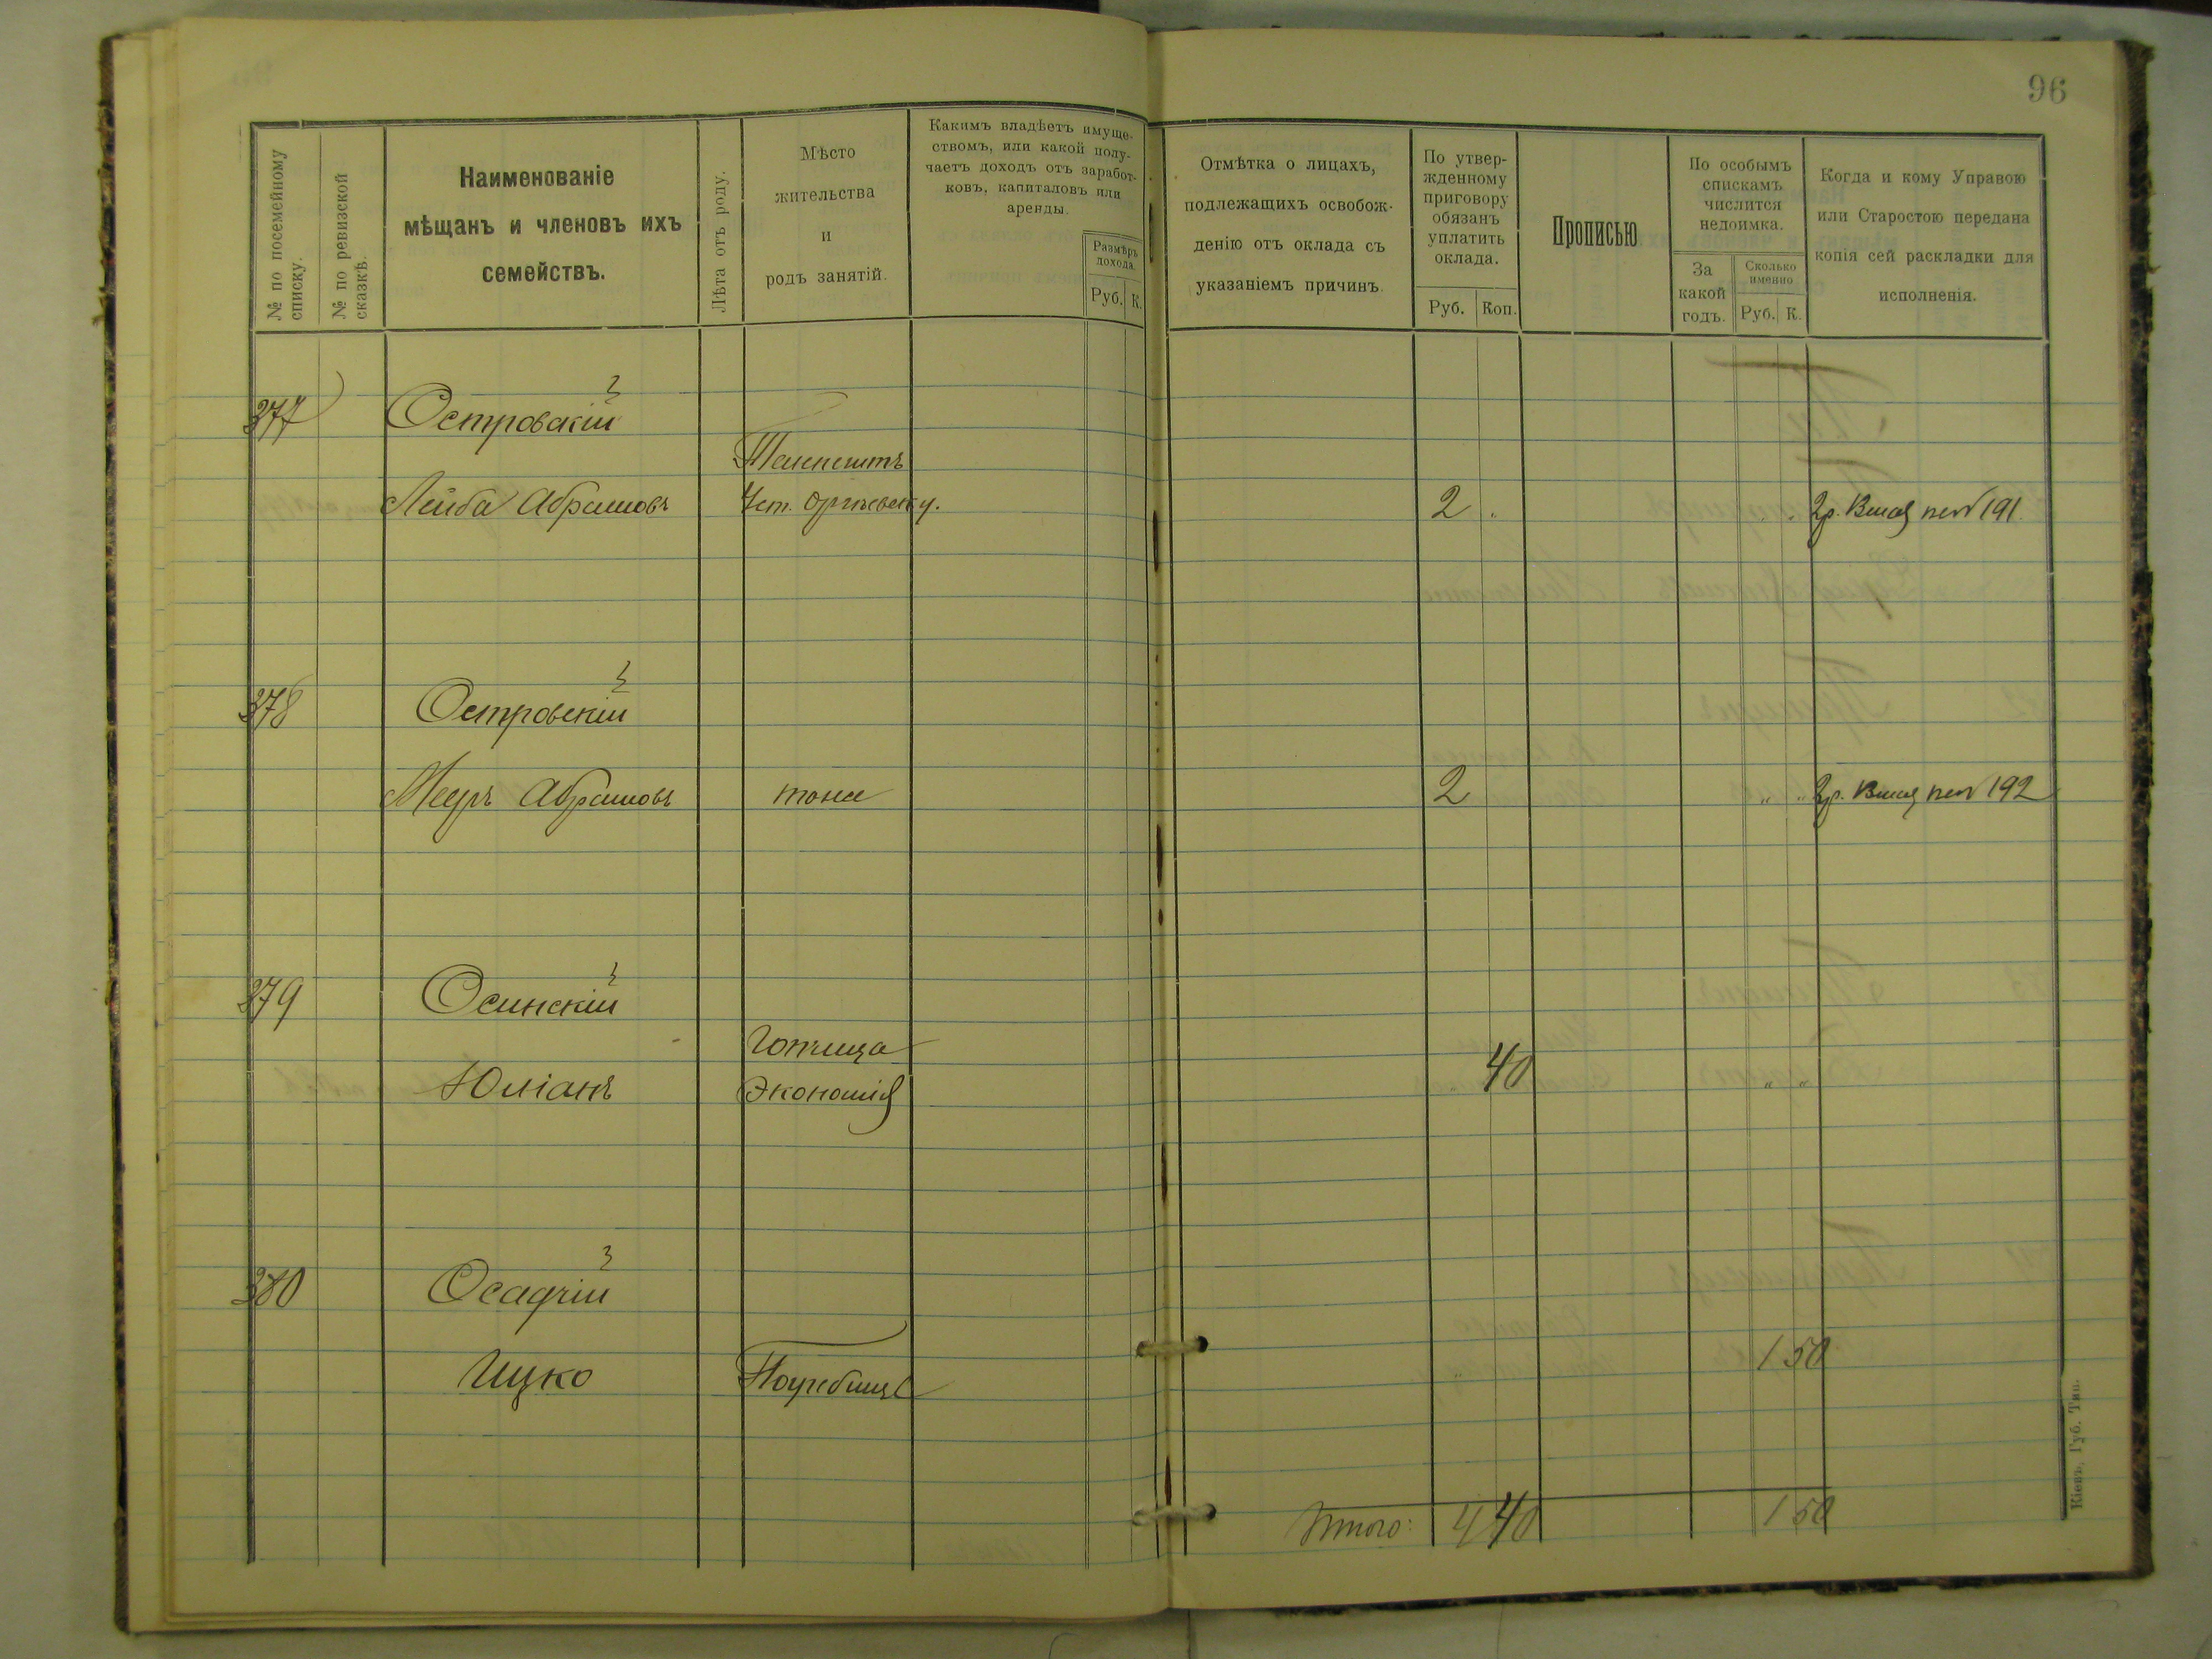 96
№ по посемейному списку.
№ по ревизской сказкѣ.
Наименованіе
мѣщанъ и членовъ ихъ
семействъ.
Лѣта отъ роду.
Мѣсто
жительства
и
родъ занятій.
Какимъ владѣетъ имуще-
ствомъ, или какой полу-
чаетъ доходъ отъ заработ-
ковъ, капиталовъ или
аренды.
Размѣръ
дохода.
Руб. К.
Отмѣтка о лицахъ,
подлежащихъ освобож-
денію отъ оклада съ
указаніемъ причинъ.
По утвер-
жденному
приговору
обязанъ
уплатить
оклада.
Руб. Коп.
Прописью
По особымъ
спискамъ
числится
недоимка.
За
какой
годъ.
Сколько
именно
Руб. К.
Когда и кому Управою
или Старостою передана
копія сей раскладки для
исполненія.
377 Островскій
Теленештъ
Лейба Абрамовъ Оргѣевск у. 2 2 р. 191
378 Островскій
Мееръ Абрамовъ тоже 2 " " 2 р. 192
379 Осинскій
Экономія
Юліанъ 40 " "
380 Осадчій
Ицко 1 50
Итого: 4 40 1 50
Кіевъ, Губ. Тип.